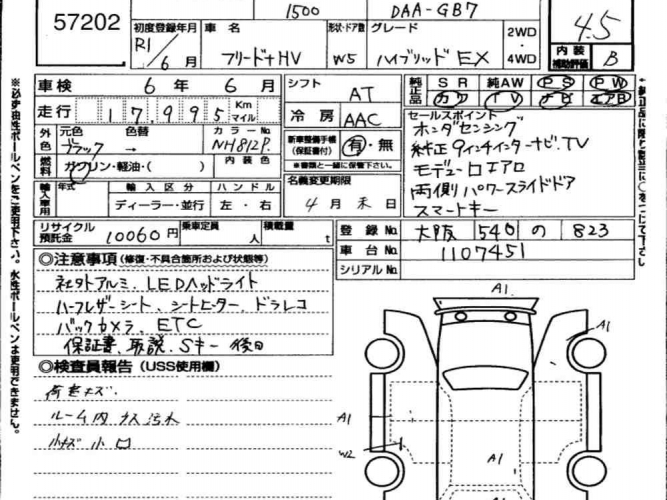 57202
1500
DAA-GB7
4.5
内装
補助評価
B
初度登録年月
R1/6月
車名
フリード+HV
形状・ドア数
W5
グレード
ハイブリッドEX
2WD
・
4WD
車検 6年 6月
走行 17,995 Km
マイル
外色
元色 色替
ブラック →
カラーNo.
NH812P
内装色
燃料
ガソリン・軽油・( )
輸入車用
年式
輸入区分
ディーラー・並行
ハンドル
左・右
シフト
AT
冷房
AAC
新車整備手帳
(保証書付)
有・無
※書類と一緒に保管下さい。
名義変更期限
4月末日
純正品
SR 純正AW PS PW
カワ TV ナビ エアB
セールスポイント
ホンダセンシング
純正9インチインターナビ.TV
モデューロエアロ
両側パワースライドドア
スマートキー
リサイクル
預託金
10060円
乗車定員
人
積載量
t
登録No. 大阪 540 の 823
車台No. 1107451
シリアルNo.
◎注意事項(修復・不具合箇所および状態等)
社外アルミ、LEDヘッドライト
ハーフレザーシート、シートヒーター、ドラレコ
バックカメラ、ETC
保証書、取説、Sキー後日
◎検査員報告(USS使用欄)
ルーム内
小キズ小凹
※必ず油性ボールペンをご使用下さい。水性ボールペンは使用できません。
A1
A1
A1
W2
A1
A1